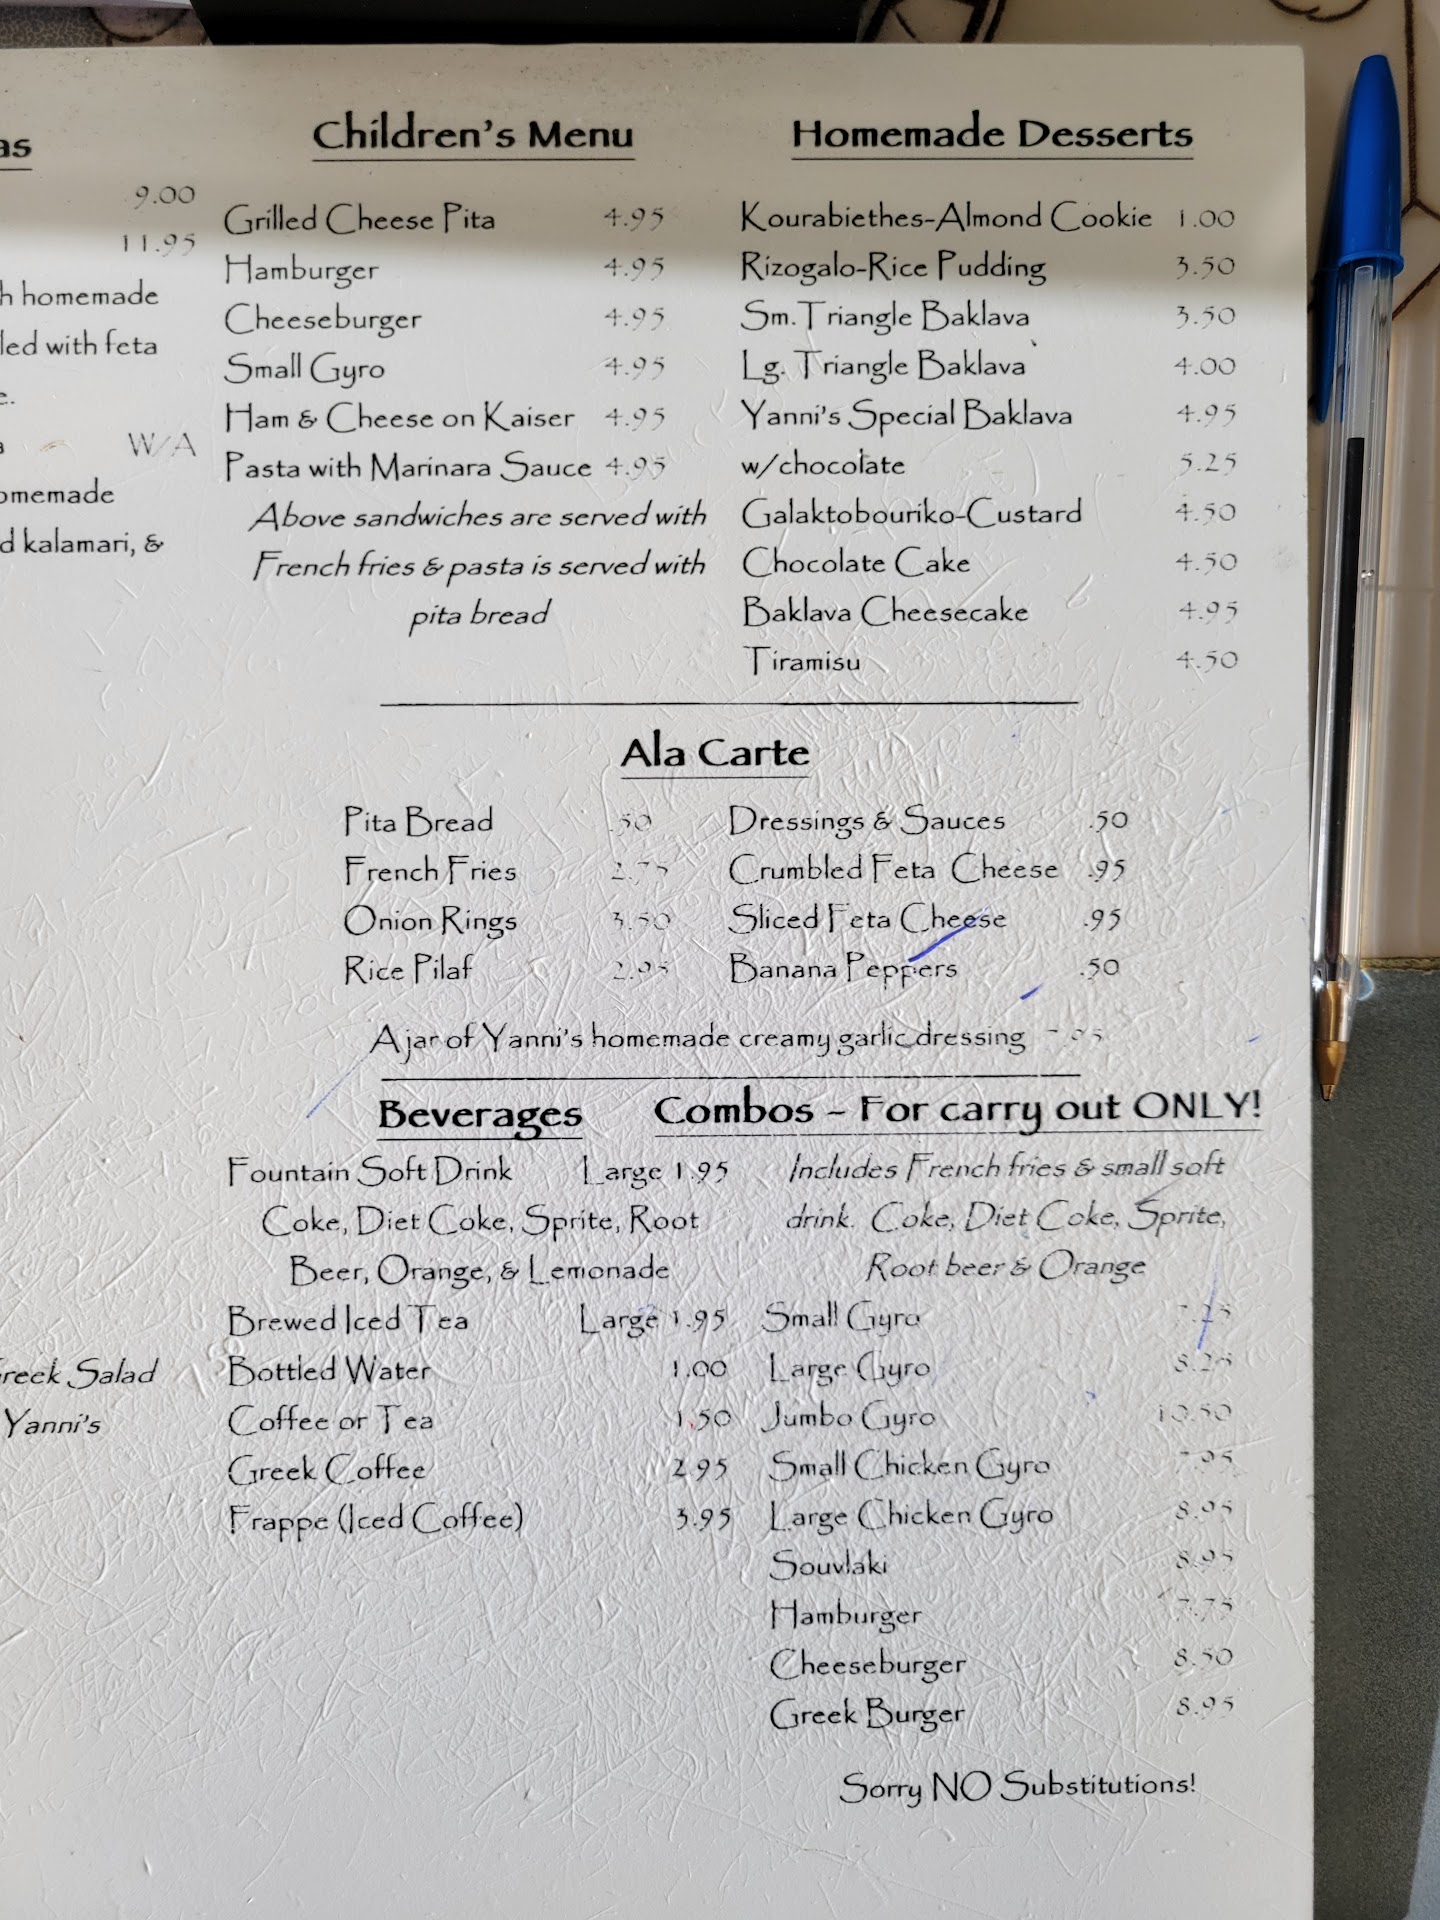 as
9.00
11.95
h homemade
led with feta
W/A
omemade
d kalamari, &
Greek Salad
Yanni's
Children's Menu
Grilled Cheese Pita 4.95
Hamburger 4.95
Cheeseburger 4.95
Small Gyro 4.95
Ham & Cheese on Kaiser 4.95
Pasta with Marinara Sauce 4.95
Above sandwiches are served with
French fries & pasta is served with
pita bread
Homemade Desserts
Kourabiethes-Almond Cookie 1.00
Rizogalo-Rice Pudding 3.50
Sm. Triangle Baklava 3.50
Lg. Triangle Baklava 4.00
Yanni's Special Baklava 4.95
w/chocolate 5.25
Galaktobouriko-Custard 4.50
Chocolate Cake 4.50
Baklava Cheesecake 4.95
Tiramisu 4.50
Ala Carte
Pita Bread .50
French Fries 2.75
Onion Rings 3.50
Rice Pilaf 2.95
Dressings & Sauces .50
Crumbled Feta Cheese .95
Sliced Feta Cheese .95
Banana Peppers .50
A jar of Yanni's homemade creamy garlic dressing
Beverages
Fountain Soft Drink Large 1.95
Coke, Diet Coke, Sprite, Root
Beer, Orange, & Lemonade
Brewed Iced Tea Large 1.95
Bottled Water 1.00
Coffee or Tea 1.50
Greek Coffee 2.95
Frappe (Iced Coffee) 3.95
Combos - For carry out ONLY!
Includes French fries & small soft
drink. Coke, Diet Coke, Sprite,
Root beer & Orange
Small Gyro 7.25
Large Gyro 8.25
Jumbo Gyro 10.50
Small Chicken Gyro 7.95
Large Chicken Gyro 8.95
Souvlaki 8.95
Hamburger 7.75
Cheeseburger 8.50
Greek Burger 8.95
Sorry NO Substitutions!